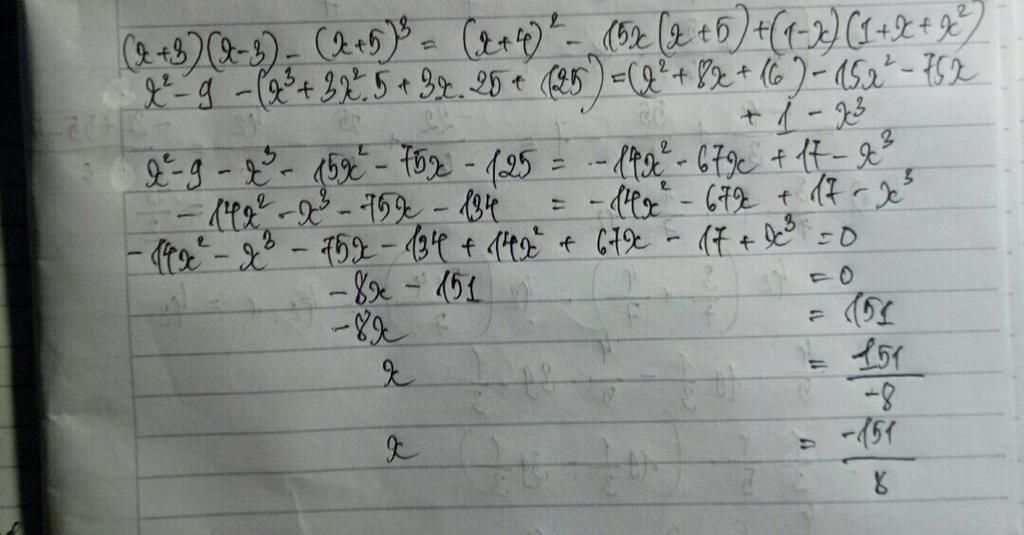 (x+3)(x-3) - (x+5)³ = (x+4)² - 15x(x+5)+(1-x)(1+x+x²)
x² - 9 - (x³ + 3x².5 + 3x.25 + 125) = (x² + 8x + 16) - 15x² - 75x
+ 1 - x³
x² - 9 - x³ - 15x² - 75x - 125 = -14x² - 67x + 17 - x³
- 14x² - x³ - 75x - 134 = -14x² - 67x + 17 - x³
- 14x² - x³ - 75x - 134 + 14x² + 67x - 17 + x³ = 0
-8x - 151 = 0
-8x = 151
x = 151/-8
x = -151/8